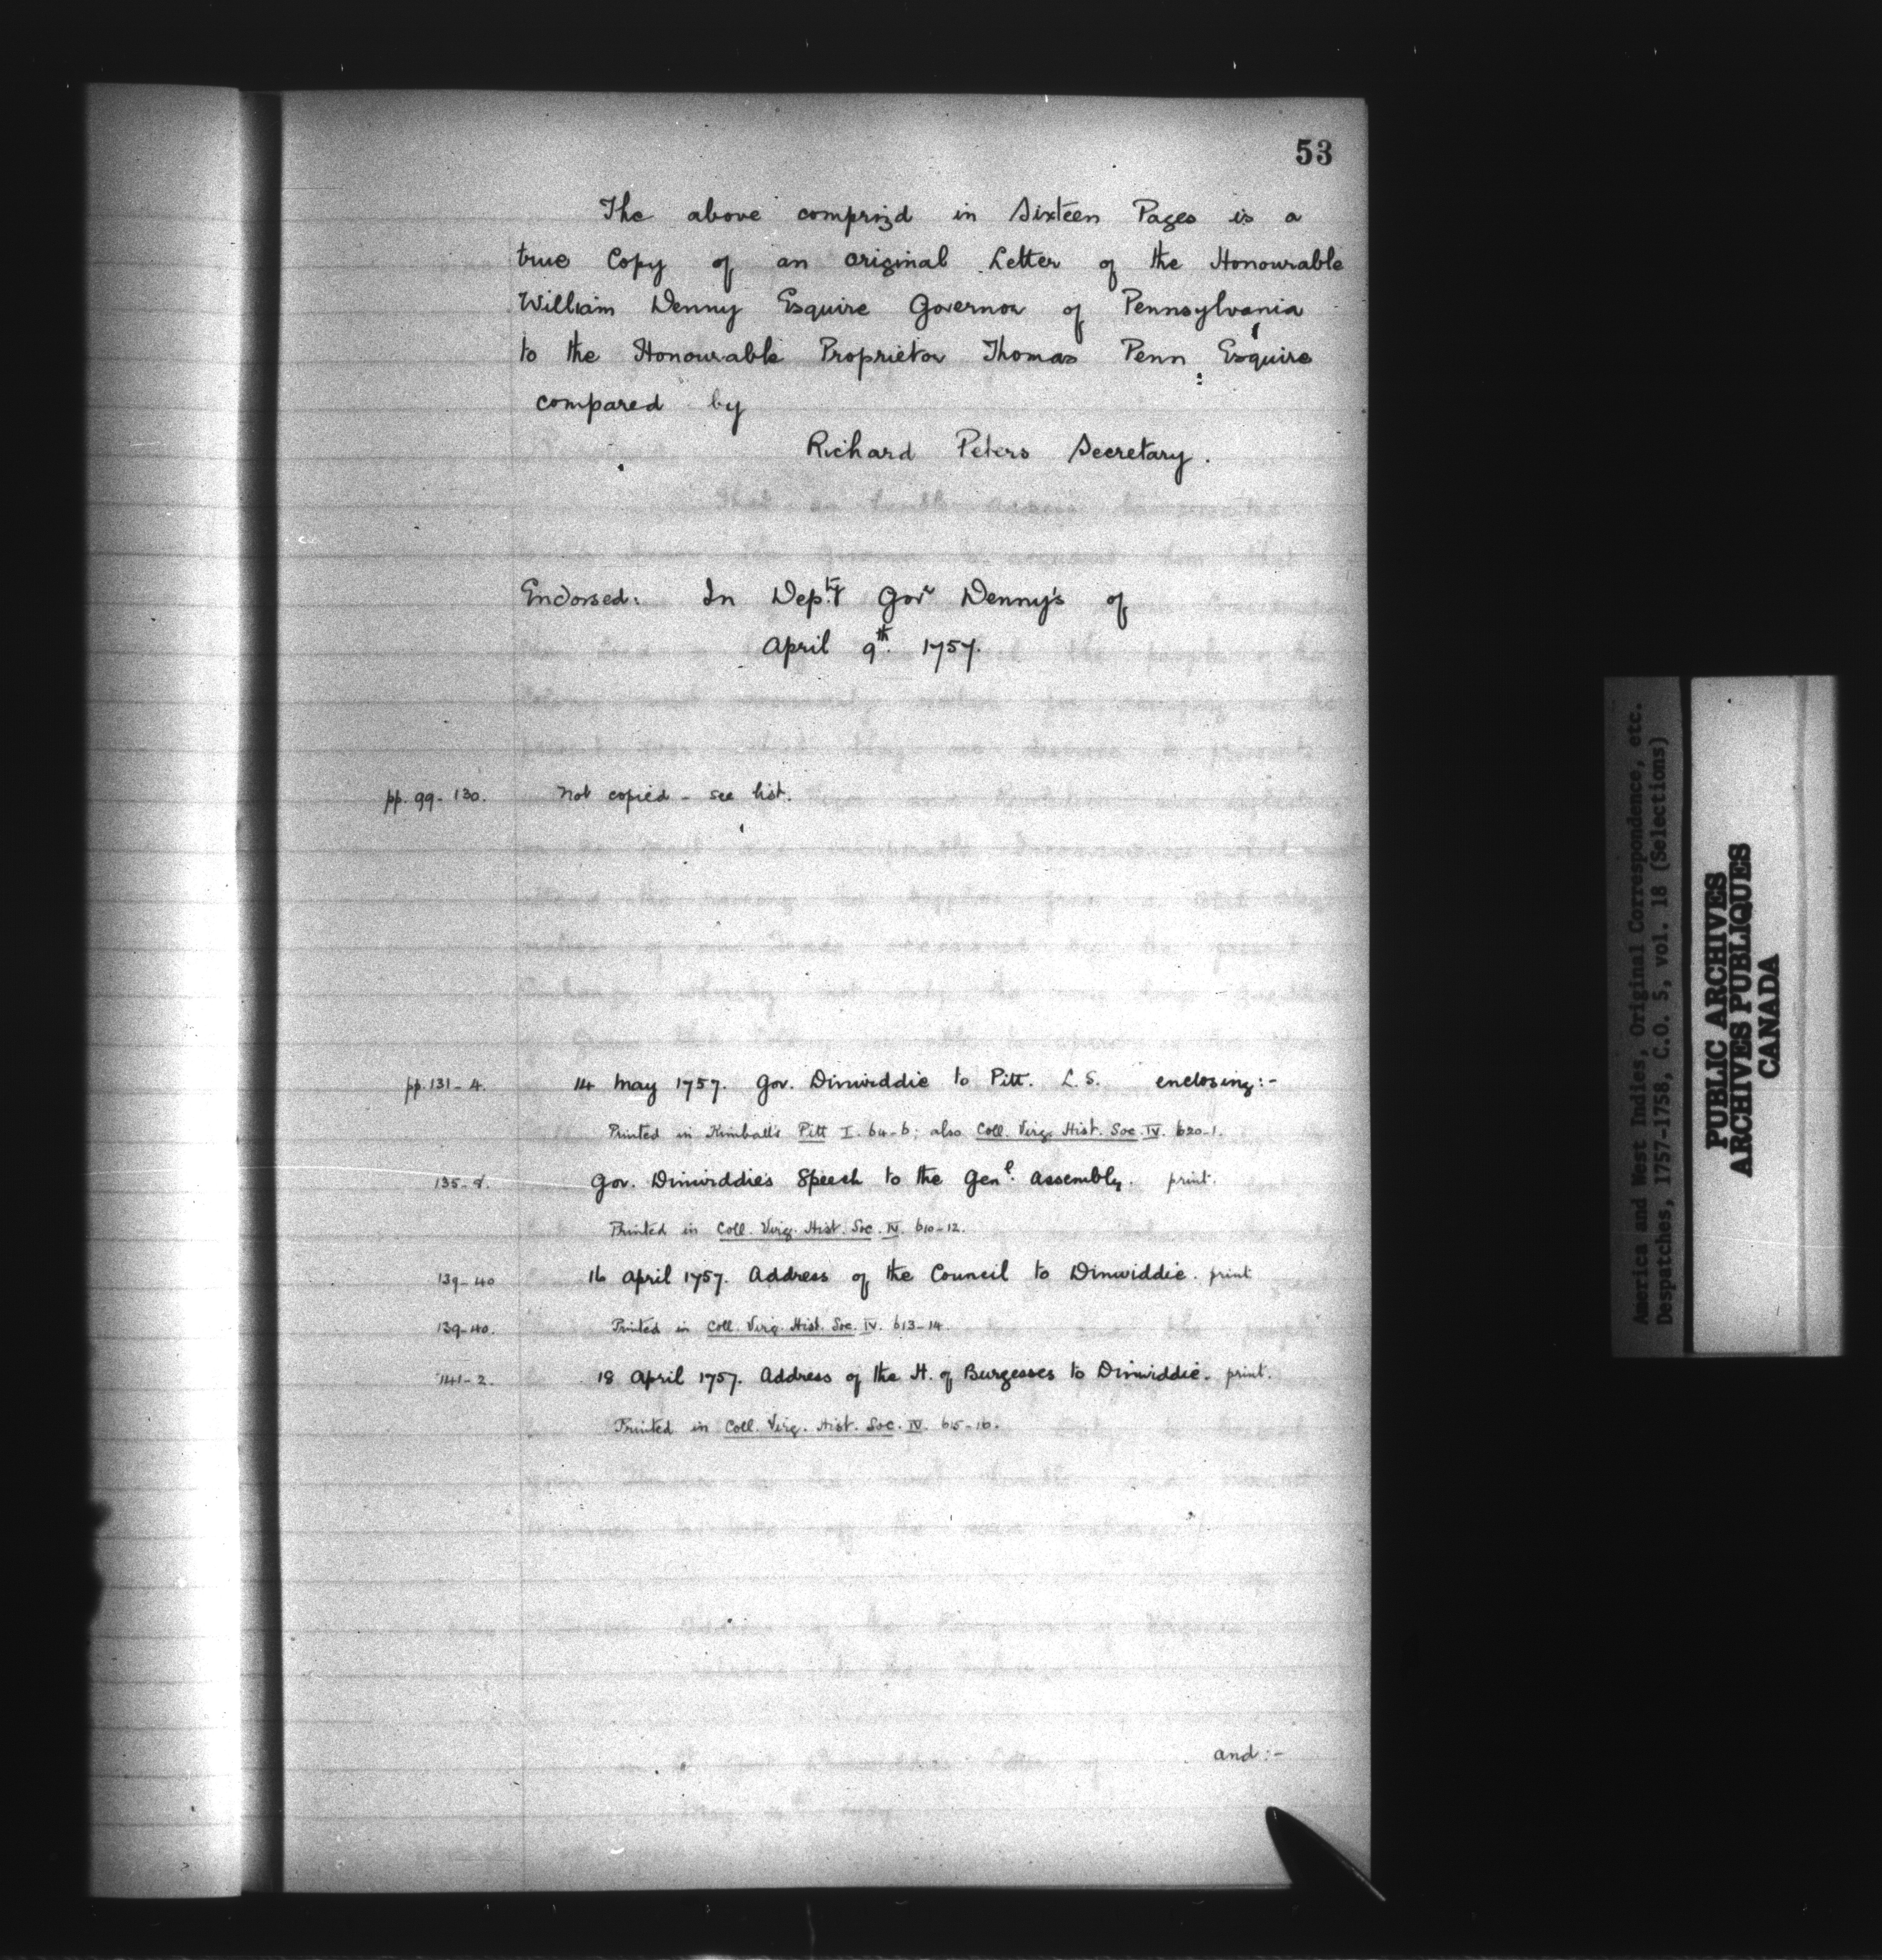 53
The above comprizd in Sixteen Pages is a
true Copy of an original Letter of the Honourable
William Denny Esquire Governor of Pennsylvania
to the Honourable Proprietor Thomas Penn Esquire
compared by
Richard Peters Secretary.
Endorsed: In Dep.ty Gov.r Denny's of
April 9th. 1757.
pp. 99-130. Not copied - see list.
pp. 131-4. 14 May 1757. Gov. Dinwiddie to Pitt. L.S. enclosing:-
Printed in Kimball's Pitt I. 64-6; also Coll. Virg. Hist. Soc. IV. 620-1.
135-8. Gov. Dinwiddie's Speech to the Gen.l Assembly. print.
Printed in Coll. Virg. Hist. Soc. IV. 610-12.
139-40 16 April 1757. Address of the Council to Dinwiddie. print
139-40. Printed in Coll. Virg. Hist. Soc. IV. 613-14.
141-2. 18 April 1757. Address of the H. of Burgesses to Dinwiddie. print.
Printed in Coll. Virg. Hist. Soc. IV. 615-16.
and:-
America and West Indies, Original Correspondence, etc.
Despatches, 1757-1758, C.O. 5, vol. 18 (Selections)
PUBLIC ARCHIVES
ARCHIVES PUBLIQUES
CANADA